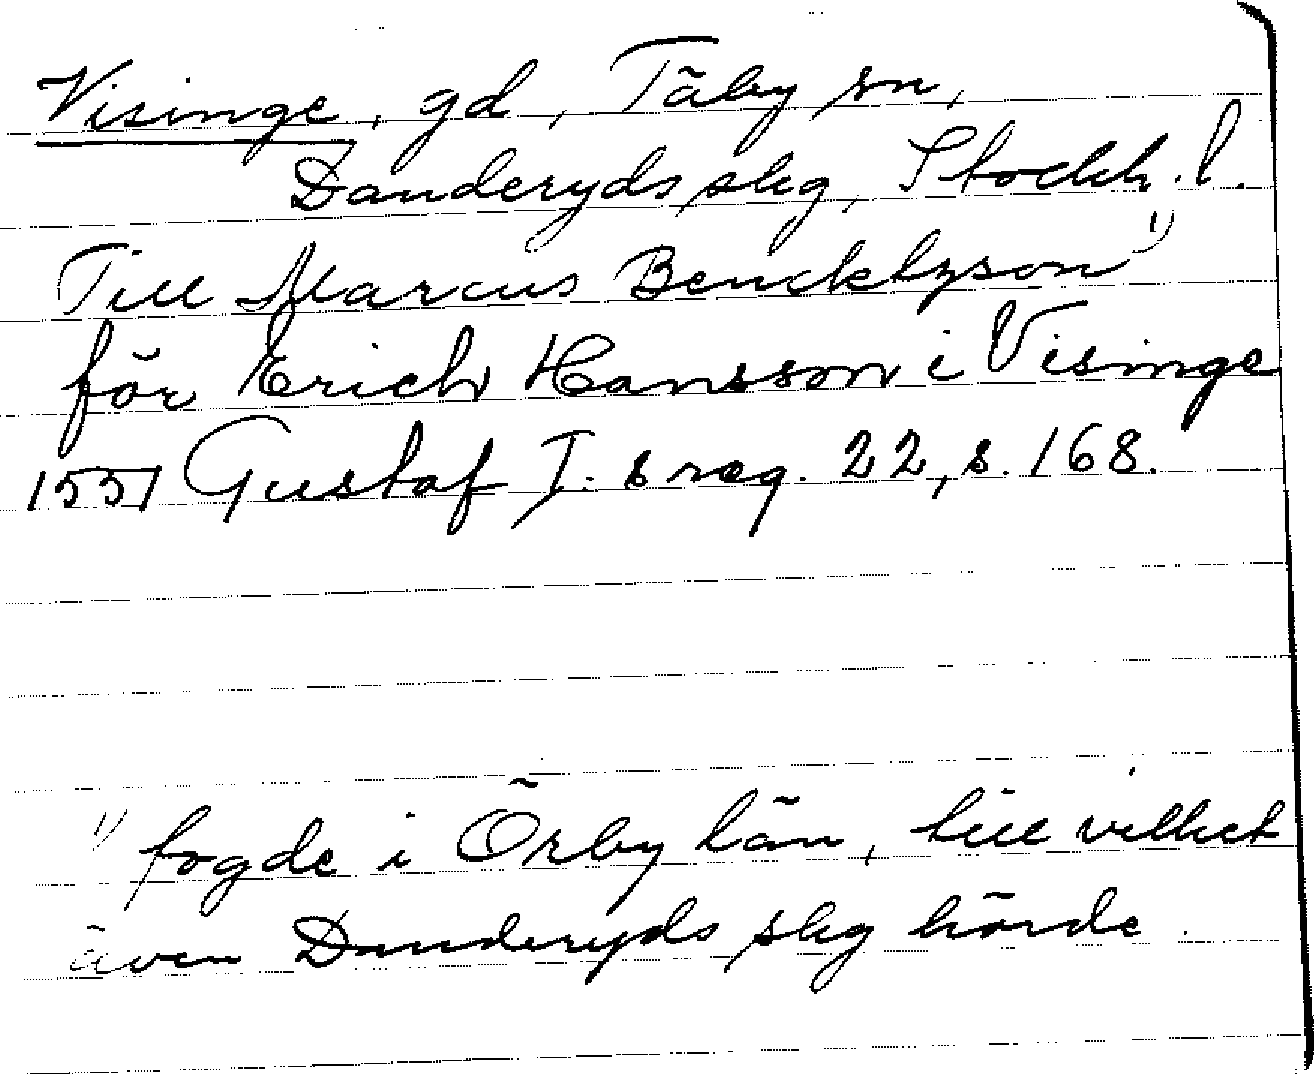 Visinge, gd, Täby sn,
Danderyds slg, Stockh. l.
Till Marcus Bencktzson 1)
för Erich Hansson i Visinge
1551 Gustaf I:s reg. 22, s. 168.
1) fogde i Örby län, till vilket
även Danderyds slg hörde.